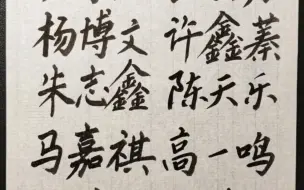 杨博文 许鑫蓁
朱志鑫 陈天乐
马嘉祺 高一鸣